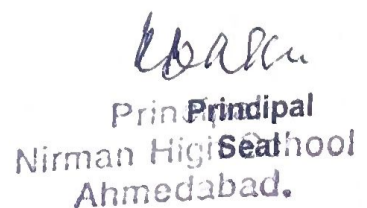 Principal
Principal
Nirman High School
Seal
Ahmedabad.